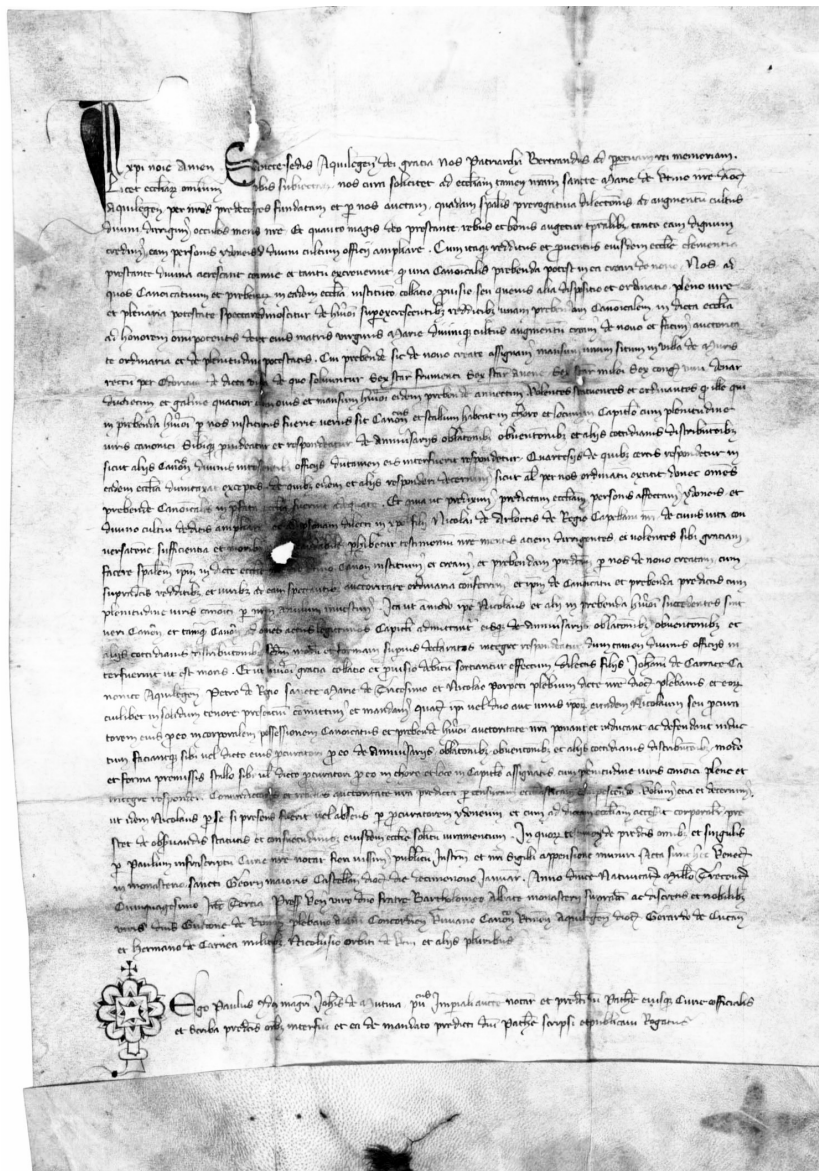 In xpi noie Amen Sancte sedis Aquilegen dei gracia Nos Patriarcha Bertrandus ad perpetuam rei memoriam.
Licet eccliar omnium nobis subiectar nos cura solicitet ad eccliam tamen nram sancte Marie de Utino nre dioc
Aquilegen per nros predecessores fundatam et p nos auctam, quadam spalis prerogativa dilectionis ac augmentu cultus
divini dirigim occulos mens nre. Et quanto magis deo prestante rebus et bonis augetur tpalibz tanto eam dignum
credim, eam personis ydoneis ad divini cultum officij ampliare. Cum itaqz redditus et proventus eiusdem ecclie clementia
prestante divina acrescant continue et tantu excreverunt, q una Canonicalis prebenda potest in ea creari de novo. Nos ad
quos Canonicatuum et prebendar in eadem ecclia institutio collatio, provisio seu quevis alia dispositio et ordinatio pleno iure
et plenaria potestate spectare dinoscitur de hmoi supexcrescentibz redditibz unam prebendam Canonicalem in dicta ecclia
ad honorem omnipotentis dei et eius matris virginis Marie divinique cultus augmentum cream de novo et facim auctorita
te ordinaria et de plenitudine potestatis. Cui prebende sic de novo create assignam mansum unum situm in villa de
rectu per de dicta villa de quo solvuntur Sex star frumenti Sex star avene Sex star milij Sex congi vini denar
duodecim et galine quatuor et mansum hmoi eidem prebende annectim Volentes statuentes et ordinantes q ille qui
in prebenda hmoi p nos institutus fuerit verus sit Canonicus et stallum habeat in choro et locum in Capitlo cum plenitudine
iuris canonici Sibiqz provideatur et respondeatur de anniversarijs oblationibz obventionibz et alijs cottidianis distributionibz
sicut alijs Canonicis divinis officijs dumtamen eis interfuerit respondetur. Quartesijs de quibz certis respondetur in
eadem ecclia dumtaxat exceptis de quibz eidem et alijs responderi decernim sicut als per nos ordinatu extitit donec omnes
prebende Canonicales in pfata ecclia fuerint adequate. Et quia ut prediximus predictam eccliam personis affectam ydoneis et
divino cultui deditis ampliare et personam dilecti in xpo filij Nicolai de Arlottis de Regio Capellani nri de cuius vita con
versatione sufficientia et moribz laudabile phibetur testimoniu nre mentis aciem dirigentes, et volentes sibi graciam
facere spalem ipm in dicte ecclie Canonicu instituim et cream, et prebendam predictam p nos de novo creatam, cum
supradictis redditibz et iuribz ad eam spectantibz auctoritate ordinaria conferim, et ipm de Canonicatu et prebenda predictis cum
plenitudine iuris canonici p nrm anulum investim. Ita ut amodo ipe Nicolaus et alij in prebenda hmoi succedentes sint
veri Canonici et tamqz Canonici ad omnes actus legitimos Capituli admittant eisqz de anniversarijs oblationibz obventionibz et
alijs cottidianis distributionibz scdm modu et formam supius declaratos integre respondeatur dum tamen divinis officijs in
terfuerint ut est moris. Et ut hmoi gracia collatio et provisio debitu sortiantur effectum dilectis filijs Johani de Carrate Ca
nonico Aquilegen Petro de Regio sancte Marie de Tricesimo et Nicolao plebium dicte nre dioc plebanis et eor
cuilibet insolidum tenore presentiu comittim et mandam quat ipi vel duo aut unus ipor eundem Nicolaum seu procura
torem eius p eo in corporalem possessionem Canonicatus et prebende hmoi auctoritate nra ponant et inducant ac defendant induc
tum faciantqz sibi vel dicto eius pcuratori p eo de anniversarijs, oblationibz, obventionibz et alijs cottidianis distributionibz, modo
et forma premissis stallo sibi vel dicto pcuratori p eo in choro et loco in Capitlo assignatis cum plenitudine iuris canonici plene et
integre responderi. Contradictores et rebelles auctoritate nra predicta p censuram ecclesiasticam compescendo. Volum etia et decernim,
ut idem Nicolaus p se si presens fuerit vel absens p procuratorem ydoneum et cum ad dictam eccliam accesserit corporaliter pre
stet de observandis statutis et consuetudinibz eiusdem ecclie solitu iuramentum. In quor testimoniu de predictis omibz et singulis
p Paulum infrascriptu Curie nre notar fieri iussim publicu Instrm et nri Sigilli appensione muniri. Acta sunt hec Venec
in monasterio sancti Georij maioris Castellan dioc, die decimonono Januar. Anno divice Nativitatis Millo Trecentes
Quinquagesimo Indic Tercia Presetibz Ven viro dno fratre Bartholomeo Abbate monasterij supradicti ac discretis et nobilibz
viris dnis Guidone de plebano Concordien Canonico Utinen Aquilegen dioc Gerardo de Cucan
et Hermano de Carnea militibz Nicolusio Orbiti de Utino et alijs pluribus
Ego Paulus qdam magri Johis de Mutina publicus Imperiali aucte notar et predicti dni Patrche eiusqz Curie officialis
et scriba predictis omibz interfui et ea de mandato predicti dni Patrche scripsi et publicavi Rogatus